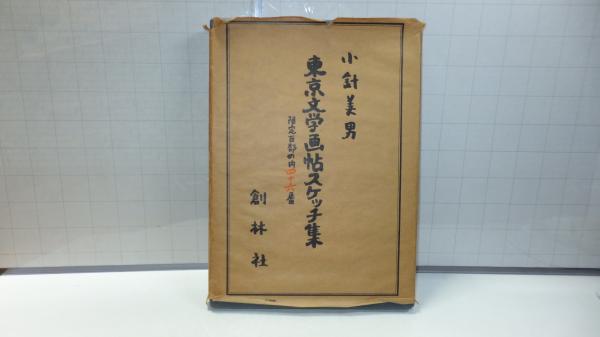 小針美男
東京文学画帖スケッチ集
限定百部の内四十六番
創林社